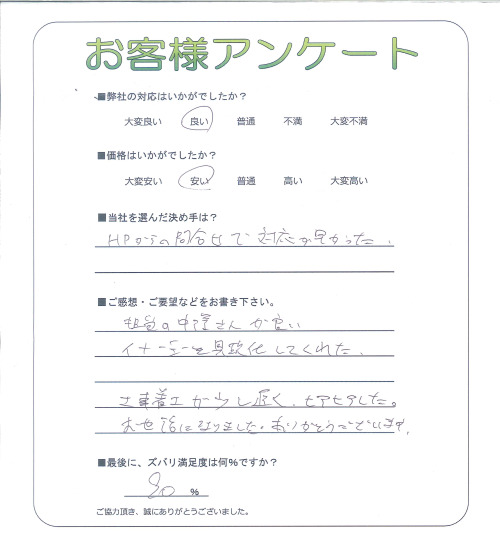 お客様アンケート
■弊社の対応はいかがでしたか？
大変良い 良い 普通 不満 大変不満
■価格はいかがでしたか？
大変安い 安い 普通 高い 大変高い
■当社を選んだ決め手は？
HPからの問合せで対応が早かった.
■ご感想・ご要望などをお書き下さい。
担当の中澤さんが良い
イメージを具現化してくれた.
工事着工が少し遅く、ヒヤヒヤした。
お世話になりました。ありがとうございます.
■最後に、ズバリ満足度は何%ですか？
90 %
ご協力頂き、誠にありがとうございました。